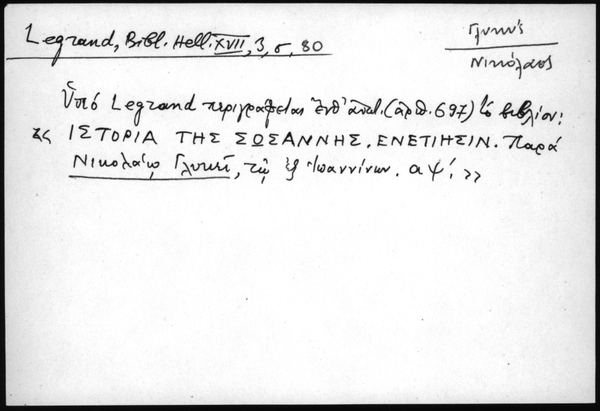 Legrand, Bibl. Hell. XVII, 3, σ, 80
Γλυκύς
Νικόλαος
Ὑπό Legrand περιγράφεται ἐνθ' ἀνωτ. (ἀριθ. 697) τό βιβλίον:
«ΙΣΤΟΡΙΑ ΤΗΣ ΣΩΣΑΝΝΗΣ. ΕΝΕΤΙΗΣΙΝ. Παρά
Νικολάῳ Γλυκεῖ, τῷ ἐξ Ἰωαννίνων. αψ΄. »